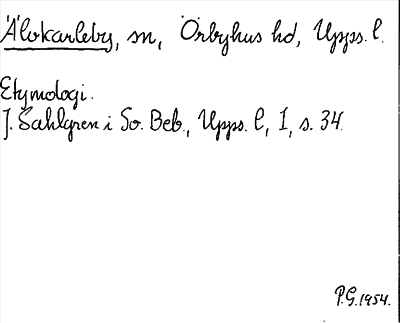 Älvkarleby, sn, Örbyhus hd, Upps. l.
Etymologi.
J. Sahlgren i Sv. Beb., Upps. l, I, s. 34.
P.G. 1954.